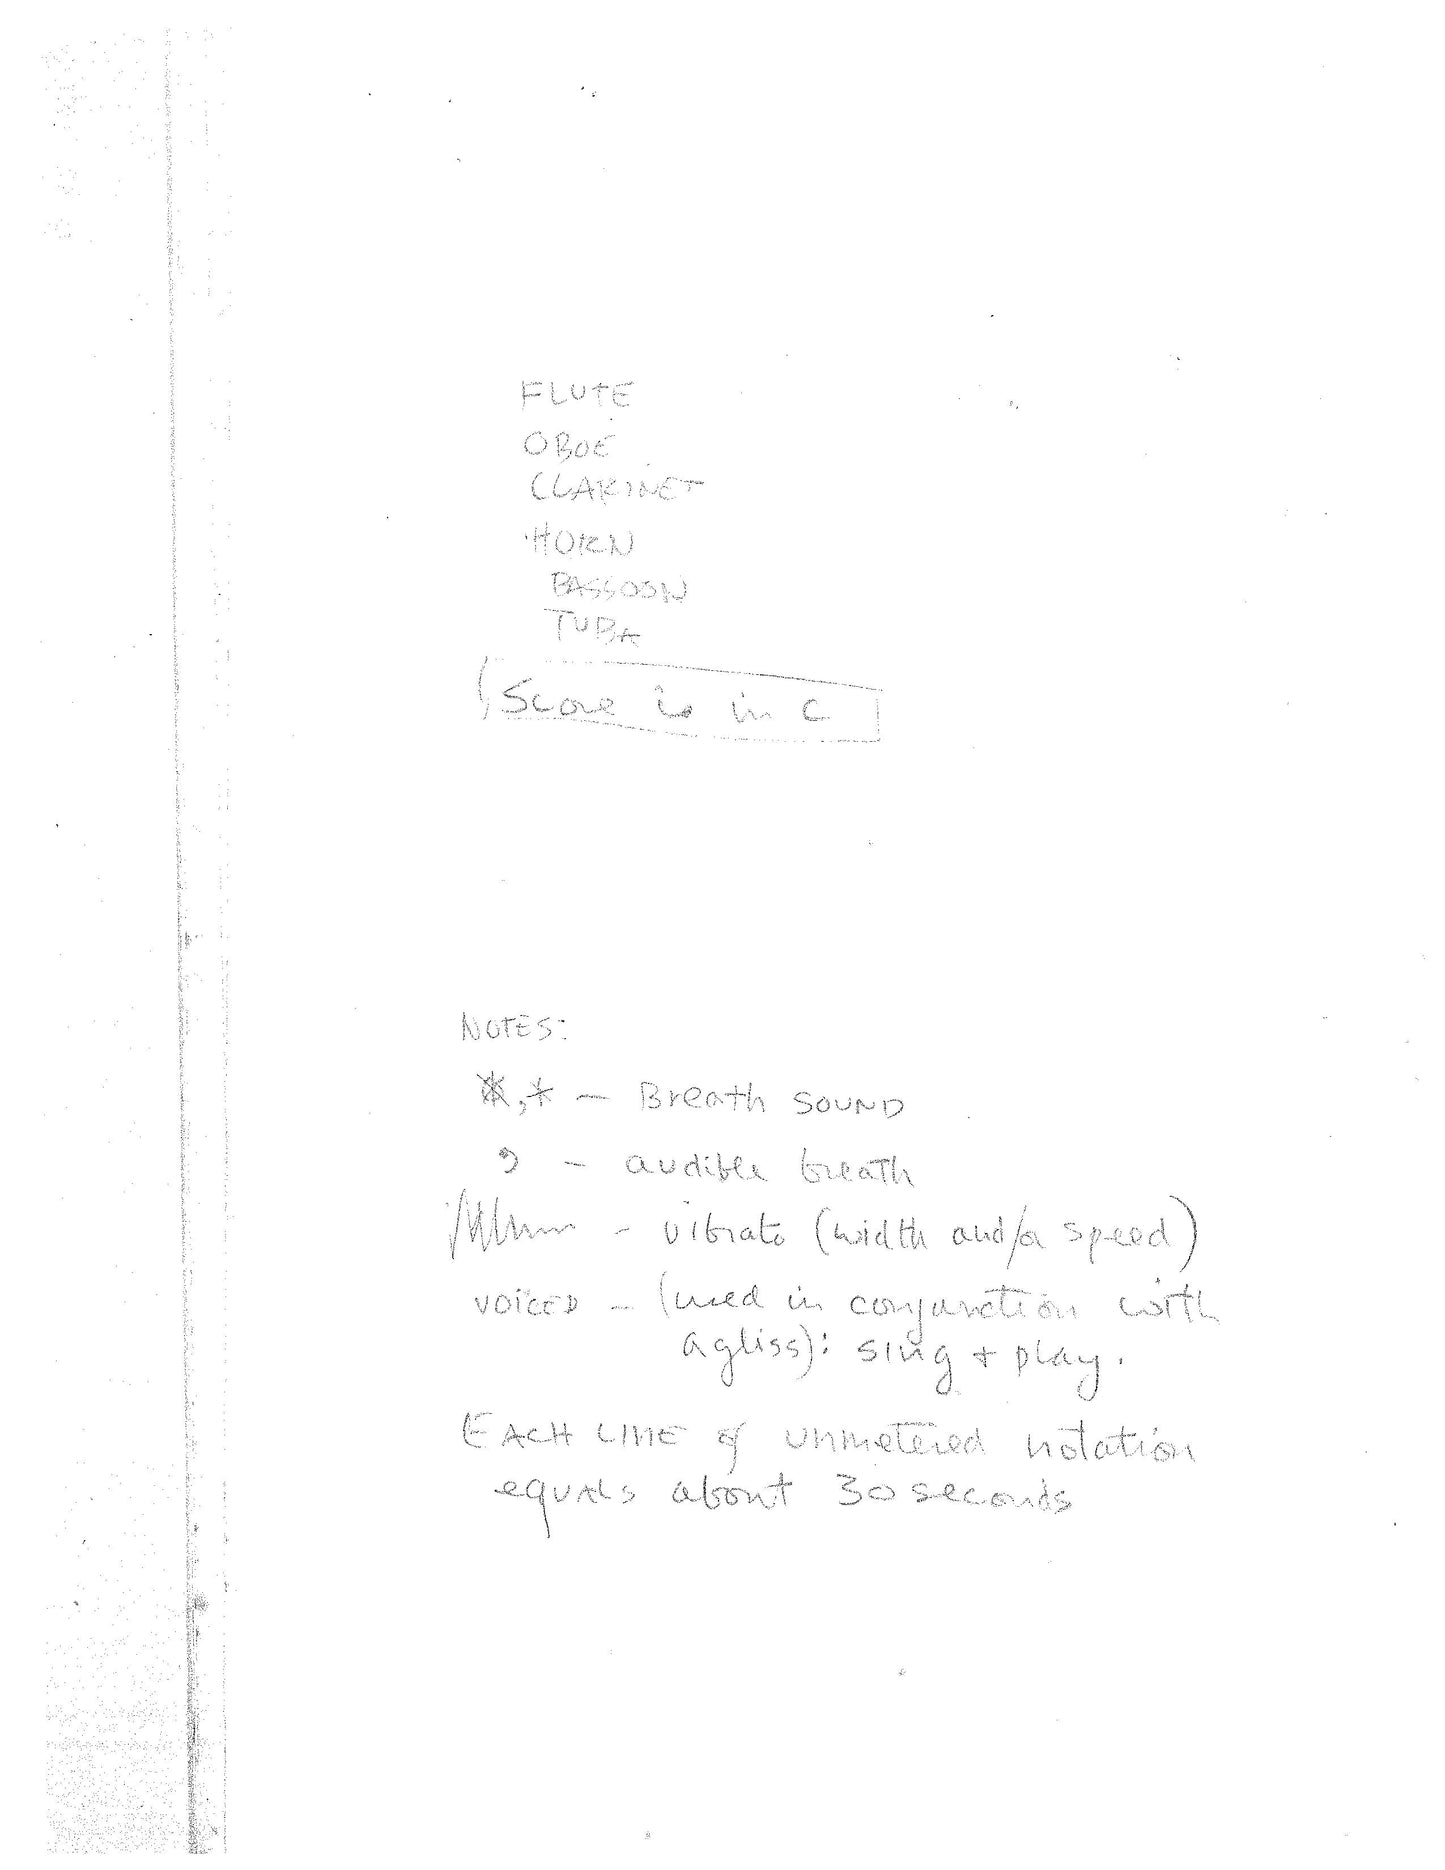 FLUTE
OBOE
CLARINET
HORN
BASSOON
TUBA
Score is in C
NOTES:
*,* – Breath SOUND
, – audible breath
– vibrato (width and/or speed)
VOICED – (used in conjunction with
a gliss): sing + play.
EACH LINE of unmetered notation
equals about 30 seconds